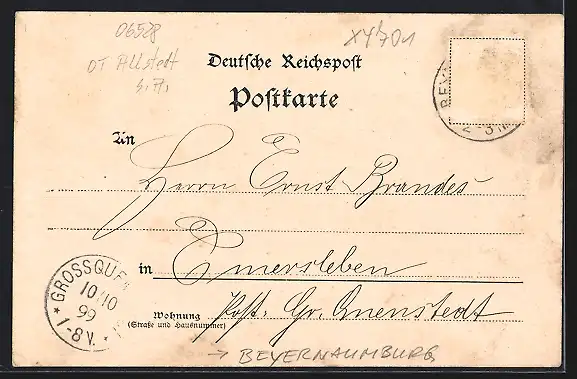 06528
OT Allstedt
S.A.
XY/701
Deutsche Reichspost
Postkarte
BEY
2-3 N
An
Herrn Ernst Brandes
in Emersleben
Wohnung
(Straße und Hausnummer)
Post. Gr. Quenstedt
GROSSQUE
10/10
99
1-8V.
→ BEYERNAUMBURG